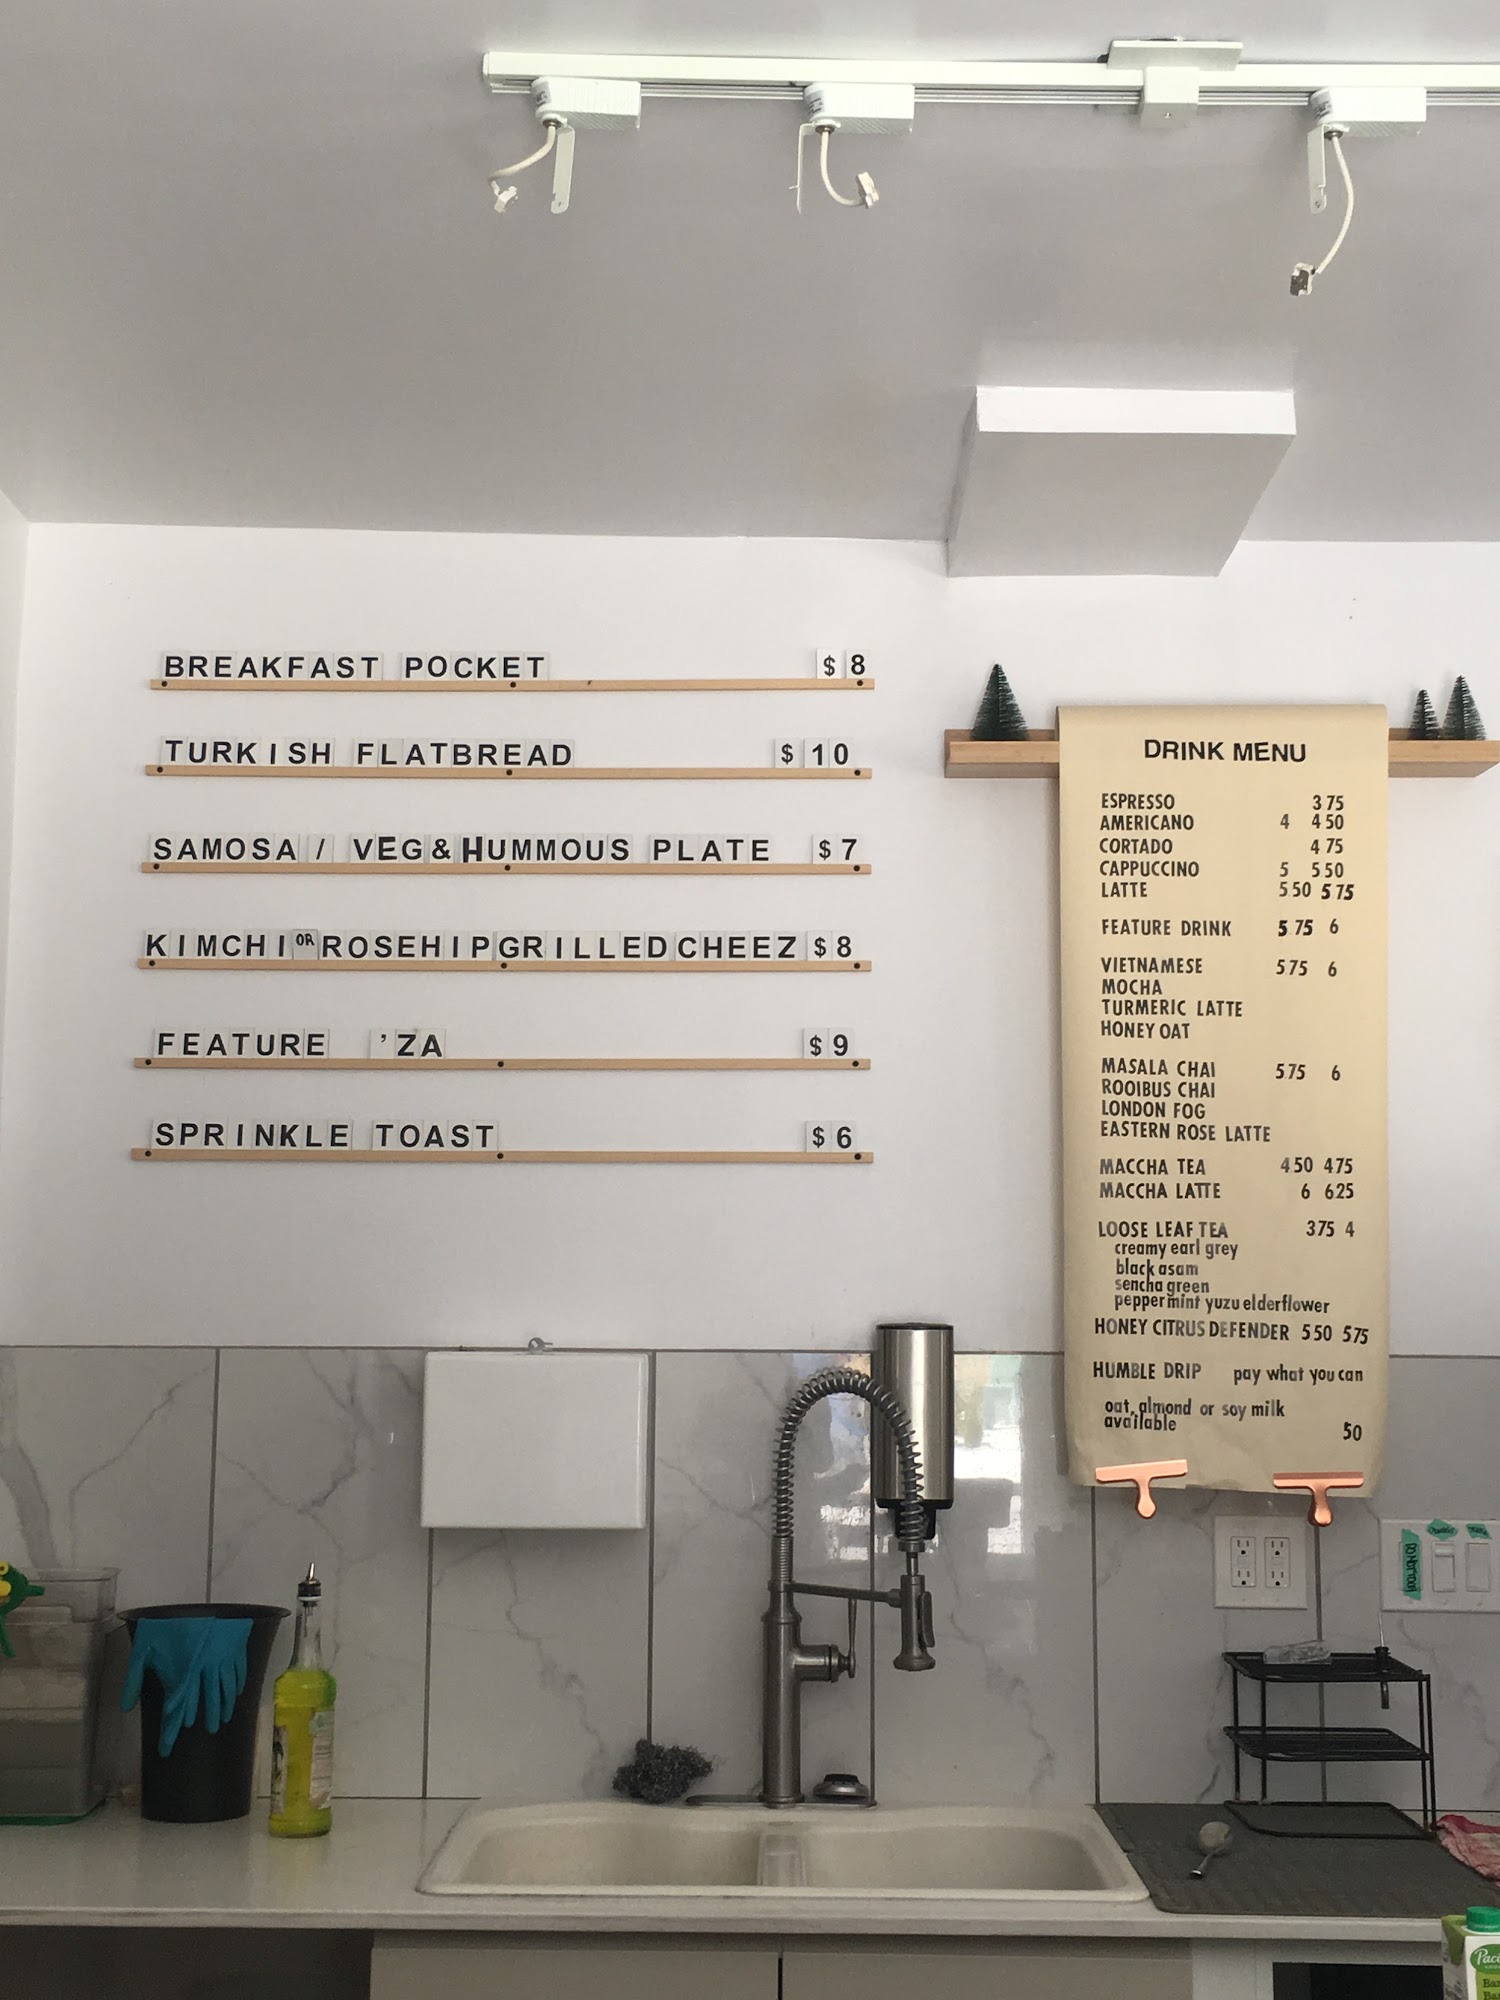 BREAKFAST POCKET $ 8
TURKISH FLATBREAD $ 10
SAMOSA / VEG & HUMMOUS PLATE $ 7
KIMCHI OR ROSEHIP GRILLED CHEEZ $ 8
FEATURE 'ZA $ 9
SPRINKLE TOAST $ 6
DRINK MENU
ESPRESSO 3 75
AMERICANO 4 4 50
CORTADO 4 75
CAPPUCCINO 5 5 50
LATTE 5 50 5 75
FEATURE DRINK 5 75 6
VIETNAMESE 5 75 6
MOCHA
TURMERIC LATTE
HONEY OAT
MASALA CHAI 5 75 6
ROOIBUS CHAI
LONDON FOG
EASTERN ROSE LATTE
MACCHA TEA 4 50 4 75
MACCHA LATTE 6 6 25
LOOSE LEAF TEA 3 75 4
creamy earl grey
black asam
sencha green
peppermint yuzu elderflower
HONEY CITRUS DEFENDER 5 50 5 75
HUMBLE DRIP pay what you can
oat, almond or soy milk
available
50